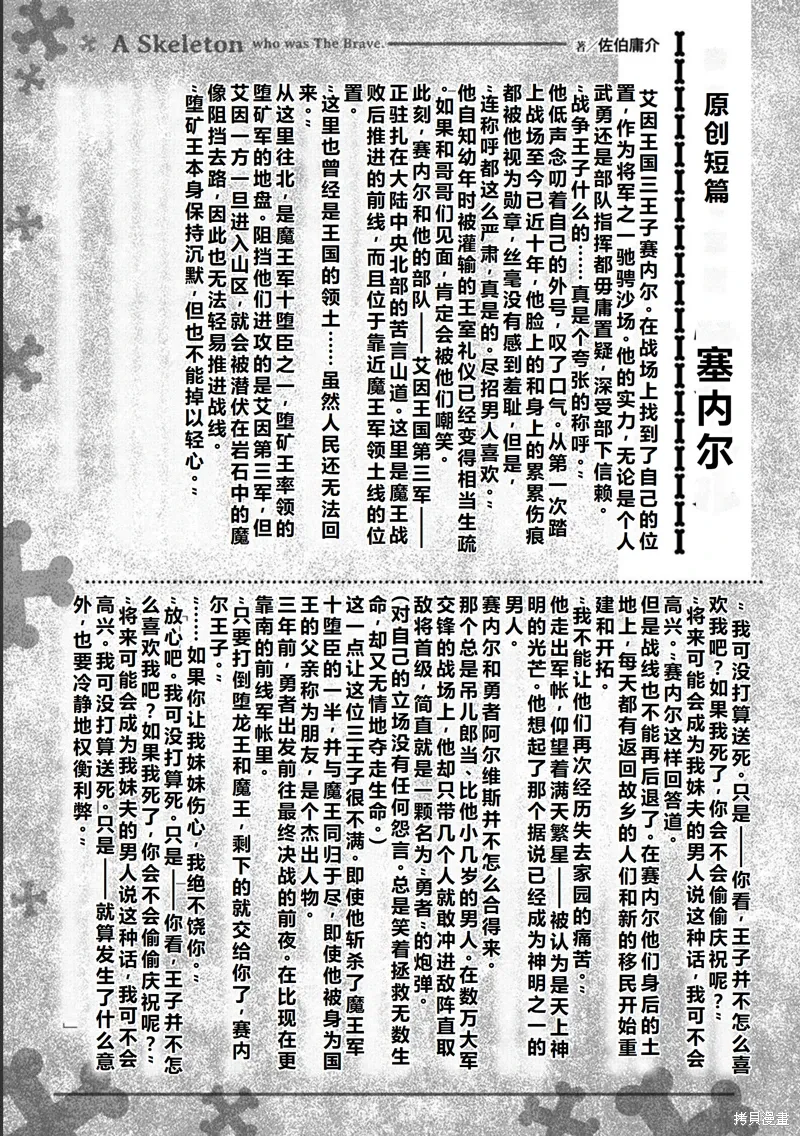 A Skeleton who was The Brave.
著／佐伯庸介
原创短篇
塞内尔
艾因王国三王子赛内尔。在战场上找到了自己的位
置，作为将军之一驰骋沙场。他的实力，无论是个人
武勇还是部队指挥都毋庸置疑，深受部下信赖。
“战争王子什么的……真是个夸张的称呼。”
他低声念叨着自己的外号，叹了口气。从第一次踏
上战场至今已近十年，他脸上的和身上的累累伤痕
都被他视为勋章，丝毫没有感到羞耻，但是，
“连称呼都这么严肃，真是的。尽招男人喜欢。”
他自知幼年时被灌输的王室礼仪已经变得相当生疏
。如果和哥哥们见面，肯定会被他们嘲笑。
此刻，赛内尔和他的部队——艾因王国第三军——
正驻扎在大陆中央北部的苦言山道。这里是魔王战
败后推进的前线，而且位于靠近魔王军领土线的位
置。
“这里也曾经是王国的领土……虽然人民还无法回
来。”
从这里往北，是魔王军十堕臣之一，堕矿王率领的
堕矿军的地盘。阻挡他们进攻的是艾因第三军，但
艾因一方一旦进入山区，就会被潜伏在岩石中的魔
像阻挡去路，因此也无法轻易推进战线。
“堕矿王本身保持沉默，但也不能掉以轻心。”
“我可没打算送死。只是——你看，王子并不怎么喜
欢我吧？如果我死了，你会不会偷偷庆祝呢？”
“将来可能会成为我妹夫的男人说这种话，我可不会
高兴。”赛内尔这样回答道。
但是战线也不能再后退了。在赛内尔他们身后的土
地上，每天都有返回故乡的人们和新的移民开始重
建和开拓。
“我不能让他们再次经历失去家园的痛苦。”
他走出军帐，仰望着满天繁星——被认为是天上神
明的光芒。他想起了那个据说已经成为神明之一的
男人。
赛内尔和勇者阿尔维斯并不怎么合得来。
那个总是吊儿郎当、比他小几岁的男人。在数万大军
交锋的战场上，他却只带几个人就敢冲进敌阵直取
敌将首级，简直就是一颗名为“勇者”的炮弹。
（对自己的立场没有任何怨言。总是笑着拯救无数生
命，却又无情地夺走生命。）
这一点让这位三王子很不满。即使他斩杀了魔王军
十堕臣的一半，并与魔王同归于尽，即使他被身为国
王的父亲称为朋友，是个杰出人物。
三年前，勇者出发前往最终决战的前夜。在比现在更
靠南的前线军帐里。
“只要打倒堕龙王和魔王，剩下的就交给你了，赛内
尔王子。”
“……如果你让我妹妹伤心，我绝不饶你。”
“放心吧。我可没打算死。只是——你看，王子并不怎
么喜欢我吧？如果我死了，你会不会偷偷庆祝呢？”
“将来可能会成为我妹夫的男人说这种话，我可不会
高兴。我可没打算送死。只是——就算发生了什么意
外，也要冷静地权衡利弊。”
拷貝漫畫